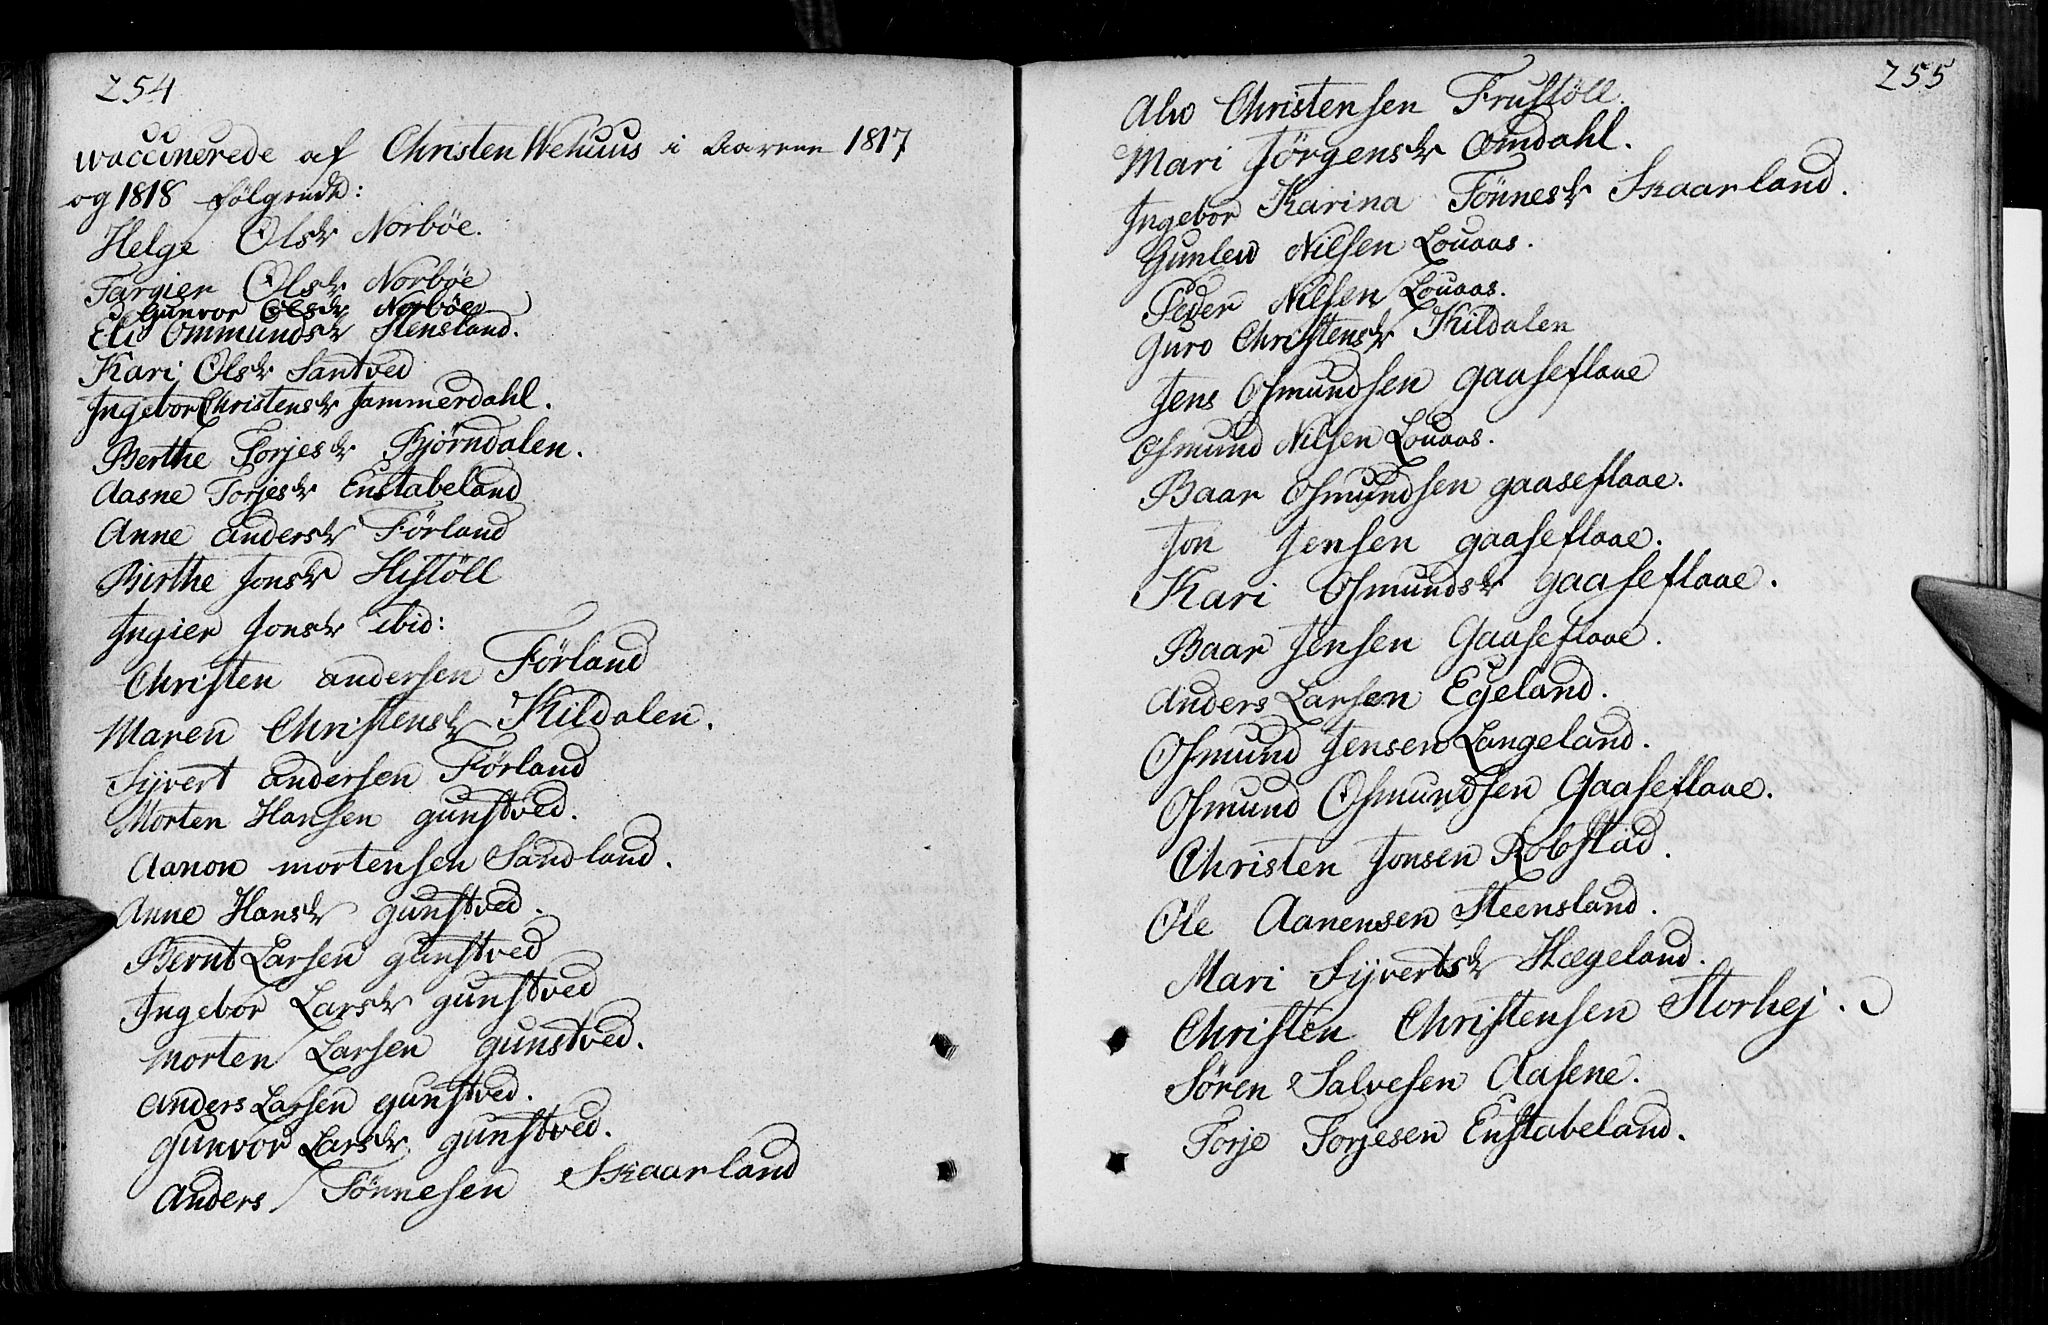 254
vaccinerede af Christen Wehuus i Aarene 1817
og 1818 følgende:
Helge Olsdr Norbøe.
Targier Olsdr Norbøe
Gunvor Olsdr Norbøe
Eli Ommundsdr Stensland.
Kari Olsdr Santved
Ingebor Christensdr Jammerdahl.
Berthe Torjesdr Bjørndalen.
Aasne Torjesdr Enstabeland
Anne andersdr Førland
Birthe Jonsdr Histöll
Ingier Jonsdr ibid:
Christen andersen Førland
Maren Christensdr Kildalen.
Sijvert andersen Førland
Morten Hansen gunstved.
Aanon mortensen Sandland.
Anne Hansdr gunstved.
Bernt Larsen gunstved
Ingebor Larsdr gunstved
Morten Larsen gunstved.
Anders Larsen gunstved.
Gunvor Larsdr gunstved.
Anders Tönnesen Skaarland
255
Alv Christensen Frustöll.
Mari Jörgensdr Omdahl.
Ingebor Karina Tönnesdr Skaarland.
Gunlev Nilsen Louaas.
Peder Nilsen Louaas.
Guro Christensdr Kildalen
Jens Osmundsen gaaseflaae
Osmund Nilsen Louaas.
Baar Osmundsen gaaseflaae.
Jon Jensen gaaseflaae.
Kari Osmundsdr gaaseflaae.
Baar Jensen Gaaseflaae.
Anders Larsen Egeland.
Osmund Jensen Langeland.
Osmund Osmundsen Gaaseflaae.
Christen Jonsen Robstad.
Ole Aanensen Steensland.
Mari Sijvertsdr Hægeland.
Christen Christensen Storhej.
Sören Salvesen Aasene.
Torje Torjesen Enstabeland.